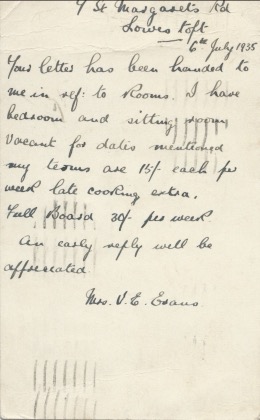 9 St Margaret's Rd
Lowestoft
6th July 1935
Your letter has been handed to
me in ref: to Rooms. I have
bedroom and sitting room
vacant for dates mentioned
my terms are 15/- each per
week late cooking extra.
Full Board 30/- per week
An early reply will be
appreciated
Mrs. V. E. Evans